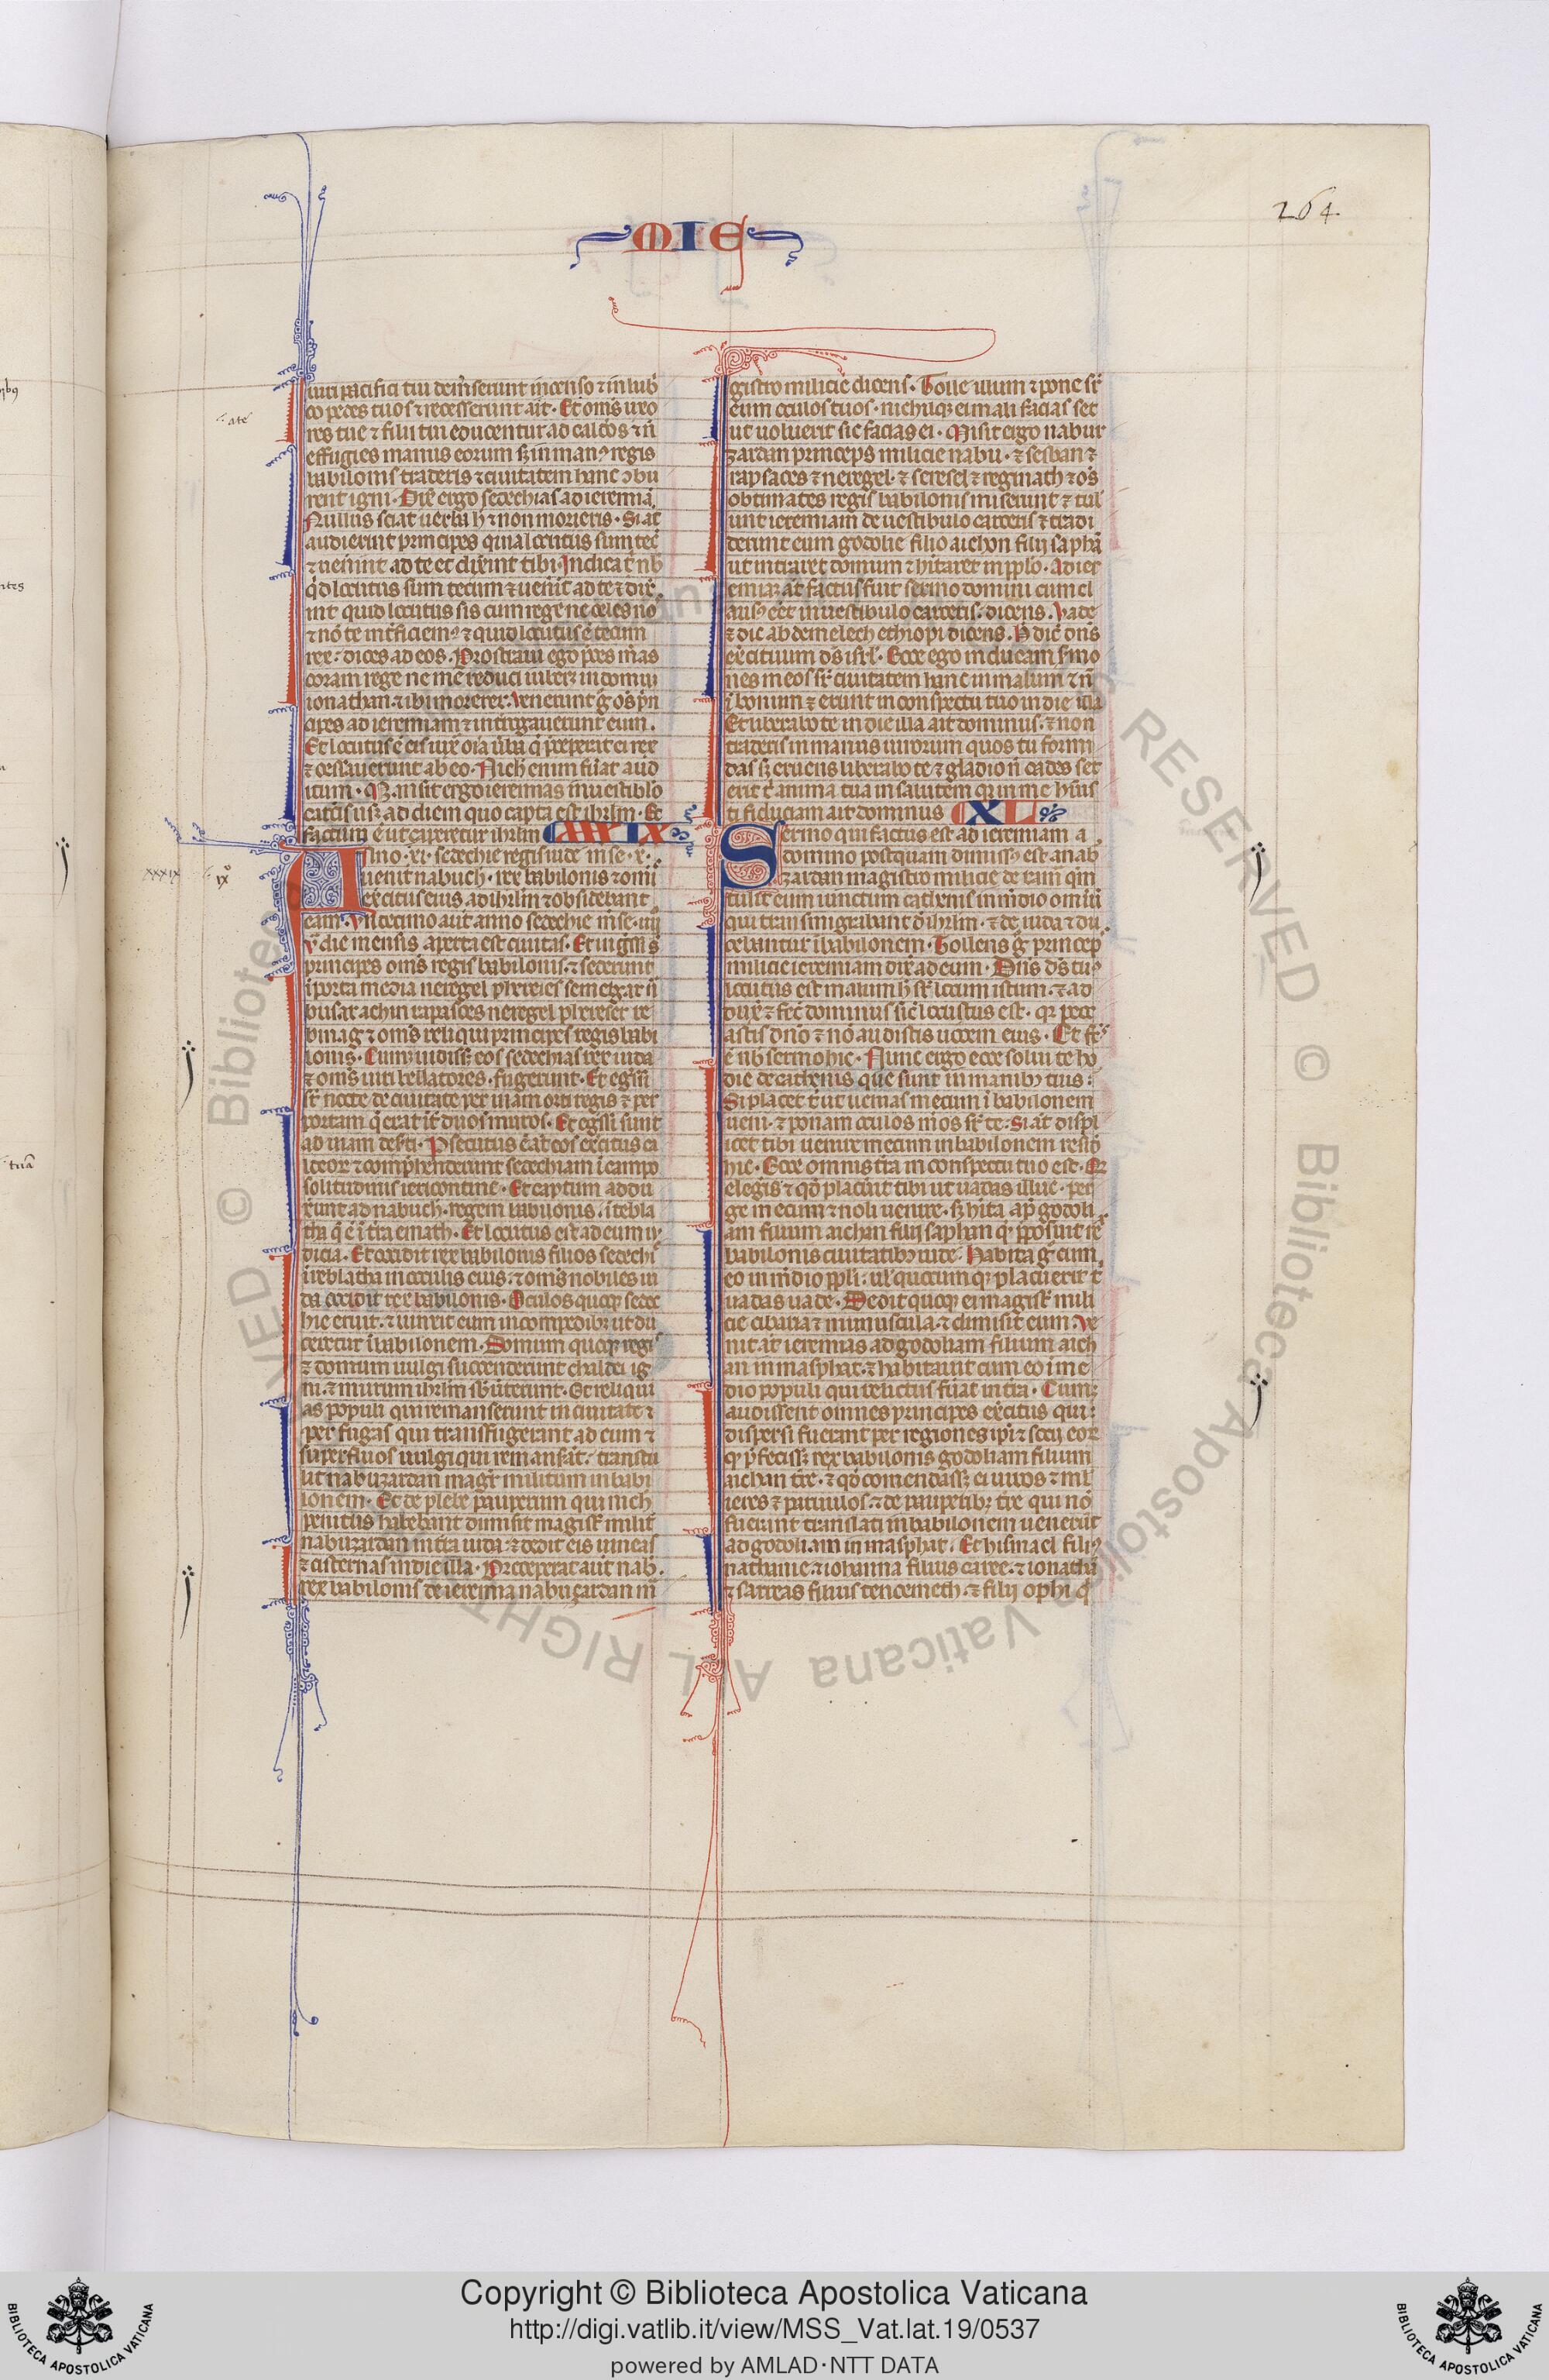 264.
MIE
uiri pacifici tui demserunt in ceno ⁊ in lub
co pedes tuos ⁊ recesserunt a te. Et om̅s uxo
res tue ⁊ filii tui educentur ad caldeos ⁊ n̅
effugies manus eorum sꝫ in manꝰ regis
babilonis traderis ⁊ ciuitatem hanc ↄbu
ret igni. Dix̅ ergo sedechias ad ieremia̅
Nullus sciat uerba h̅ ⁊ non morieris. Si at̅
audierint principes quia locutus sum tec̅
⁊ uenint ad te et dixerint tibi. Indica nb̅
qd̅ locutus sum tecum ⁊ uenit̅ ad te ⁊ dix̅
int quid locutus sis cum rege ne celes no
⁊ no̅ te int̅ficiemꝰ ⁊ quid locutus e̅ tecum
rex: dices ad eos. Prostraui ego p̅ces m̅as
coram rege ne me reduci iuberꝫ in domu̅
ionathan. ⁊ ibi morerer. Venerunt g̊ om̅s p̅n
cipes ad ieremiam ⁊ int̅rogauerunt eum.
Et locutus e̅ eis iux̅ oia u̅ba q̅ p̅ceperat ei rex
⁊ cessauerunt ab eo. Nich̅ enim fu̅at aud
itum. Mansit ergo ieremias in uestib̅lo
carc̅is usꝫ ad diem quo capta est ihrlm. Et
factum e̅ ut caperetur ihrlm XXXIX
Anno. xi. sedechie regis iude m̅se. x.
uenit nabuch. rex babilonis ⁊ om̅i
exercitus eius ad ihrlm ⁊ obsidebant
eam. Undecimo aut̅ anno sedechie m̅se. iiii
v̊ die mensis aperta est ciuitas. Et ing̅ssi s̅
principes om̅s regis babilonis. ⁊ sederunt
i̅ porta media neregel
busar achim rapsaces neregel
bmag ⁊ om̅s reliqui principes regis babi
lonis. Cumꝫ uidissꝫ eos sedechias rex iuda
⁊ om̅s uiri bellatores. fugerunt. Et eg̅ssi
st̅ nocte de ciuitate per uiam orti regis ⁊ per
portam q̅ erat int̅ duos muros. Et eg̅ssi sunt
ad uiam des̅ti. Psecutus e̅ at̅ eos ex̅citus ca
ldeoꝝ ⁊ comp̅henderunt sedechiam i̅ campo
solitudinis iericontine. Et captum addu
xerunt ad nabuch. regem babilonis. i̅ rebla
tha q̅ e̅ i̅ t̅ra emath. Et locutus est ad eum iu
dicia. Et occidit rex babilonis filios sedechi̅
i̅ reblatha in oculis eius. ⁊ om̅s nobiles iu
da occidit rex babilonis. Oculos quoqꝫ sedec
hie eruit. ⁊ uinxit eum in compedibꝫ ut du
ceretur i̅ babilonem. Domum quoqꝫ regis
⁊ domum uulgi succenderunt chaldei ig
ni. ⁊ murum ihrlm sbu̅terunt. Et reliqui
as populi qui remanserunt in ciuitate ⁊
per fugas qui transfugerant ad eum ⁊
superfluos uulgi qui remansat̅. transtu
lit nabuzardan magr̅ militum in babi
lonem. Et de plebe pauperum qui nich̅
penitus habebant dimisit magist̅ milit̅
nabuzardan in t̅ra iuda. ⁊ dedit eis uineas
⁊ cisternas in die illa. Preceperat aut̅ nab.
rex babilonis de ieremia nabuzardan m̅
gistro milicie dicens. Tolle illum ⁊ pone sr̅
eum oculos tuos. nichilqꝫ ei mali facias set
ut uoluerit sic facias ei. Misit ergo nabur
zardan princeps milicie nabu. ⁊ sesban ⁊
rapsaces ⁊ neregel. ⁊ seresel ⁊ regmath ⁊ o̅s
obtimates regis babilonis miserunt ⁊ tul
unt ieremiam de uestibulo carceris ⁊ tradi
derunt eum godolie filio aichon filij sapha̅
ut intraret domum ⁊ hitaret in pp̅lo. Ad ier
emia̅ at̅ factus fuit sermo domini cum cl
ausꝰ eet in uestibulo carceris: dicens. Vade
⁊ dic abdemelech ethiopi dicens. H̅ dic̅ dn̅s
ex̅cituum ds̅ isr̅l. Ecce ego inducam s̅mo
nes meos sr̅ ciuitatem hanc in malum ⁊ n̅
i̅ bonum ⁊ erunt in conspectu tuo in die illa
Et liberabo te in die illa ait dominus. ⁊ non
traderis in manus uirorum quos tu formi
das sꝫ eruens liberabo te ⁊ gladio n̅ cades set
erit t̅ anima tua in salutem qꝫ in me hu̅is
ti fiduciam ait dominus XL
Sermo qui factus est ad ieremiam a
domino postquam dimissꝰ est a nab
zardan magistro milicie de rama qn̅
tulit eum uinctum cathenis in m̅dio om̅iu̅
qui transmigrabant d̅ ihrlm. ⁊ de iuda ⁊ du
cebantur i̅ babilonem. Tollens g̊ princep̅
milicie ieremiam dix̅ ad eum. Dn̅s ds̅ tuꝰ
locutus est malum h̅ sr̅ locum istum. ⁊ ad
dux̅ ⁊ fec̅ dominus sic̅ locustus est. qꝫ pecc
astis dn̅o ⁊ no̅ audistis uocem eius. Et fcs̅
e̅ nb̅ sermo hic. Nunc ergo ecce solui te ho
die de cathenis que sunt in manibꝫ tuis:
Si placet t̅ ut uenias mecum i̅ babilonem
ueni. ⁊ ponam oculos m̅os sr̅ te. Si at̅ displ
icet tibi uenire mecum in babilonem reside
hic. Ecce omnis t̅ra in conspectu tuo est. Q̅
elegis̅ ⁊ qo̅ placuit tibi ut uadas illuc. per
ge mecum ⁊ noli uenire. sꝫ hita ap̅ godoli
am filium aichan filij saphan q̅ p̅posuit rex
babilonis ciuitatibꝫ iude. Habita g̊ cum
eo in m̅dio pp̅li. ul̅ quocumqꝫ placuerit t̅
uadas uade. Dedit quoqꝫ ei magist̅ mili
cie cibaria ⁊ munuscula. ⁊ dimisit eum. Ve
nit at̅ ieremias ad godoliam filium aich
an in masphat. ⁊ habitauit cum eo i̅ me
dio populi qui relictus fu̅at in t̅ra. Cumꝫ
audissent omnes principes ex̅citus qui:
dispersi fuerant per regiones ip̅i ⁊ socij eoꝝ
qꝫ p̅fecissꝫ rex babilonis godoliam filium
aichan t̅re. ⁊ qd̅ comendassꝫ ei uiros ⁊ mul
ieres ⁊ paruulos. ⁊ de pauperibꝫ t̅re qui no̅
fuerunt translati in babilonem uenerut̅
ad godoliam in masphat. Et hismael filiꝰ
nathanie. ⁊ iohanna filius caree. ⁊ ionatha̅
⁊ sareas filius tenoemeth. ⁊ filij ophi q̅
ate
xxxix
ix
tua̅
Copyright © Biblioteca Apostolica Vaticana
http://digi.vatlib.it/view/MSS_Vat.lat.19/0537
powered by AMLAD·NTT DATA
BIBLIOTECA APOSTOLICA VATICANA
BIBLIOTECA APOSTOLICA VATICANA